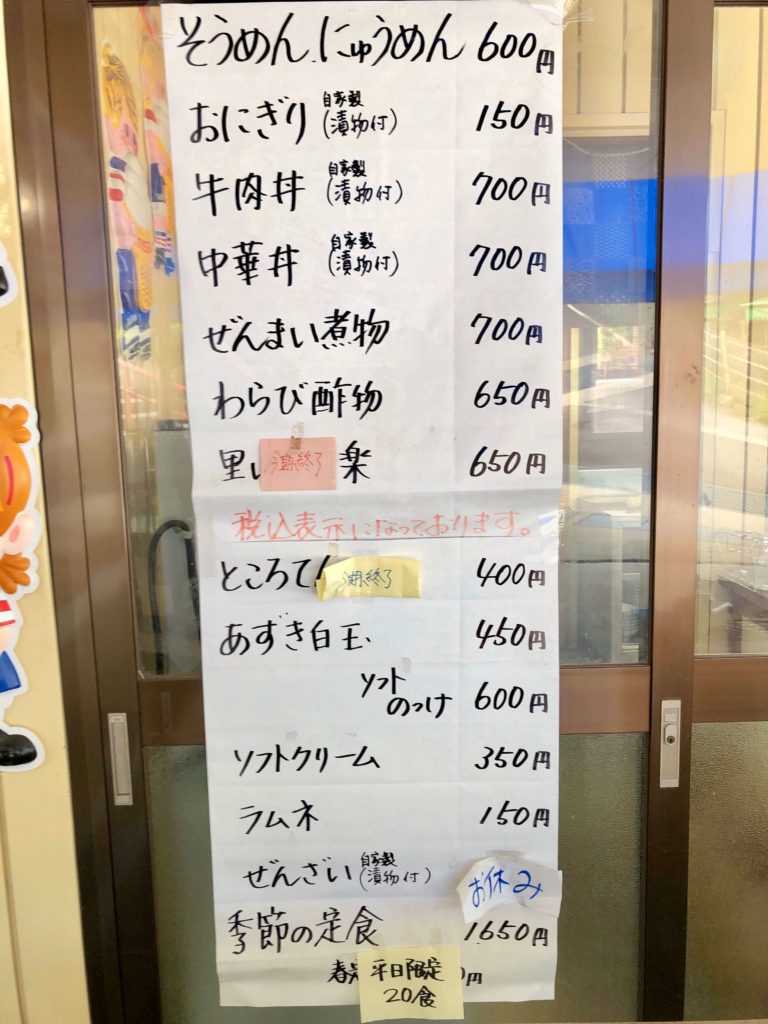 そうめん にゅうめん 600円
おにぎり 自家製(漬物付) 150円
牛肉丼 自家製(漬物付) 700円
中華丼 自家製(漬物付) 700円
ぜんまい煮物 700円
わらび酢物 650円
里い 今期終了 楽 650円
税込表示になっております。
ところて 今期終了 400円
あずき白玉 450円
ソフトのっけ 600円
ソフトクリーム 350円
ラムネ 150円
ぜんざい 自家製(漬物付) お休み
季節の定食 1650円
春 平日限定 0円
20食